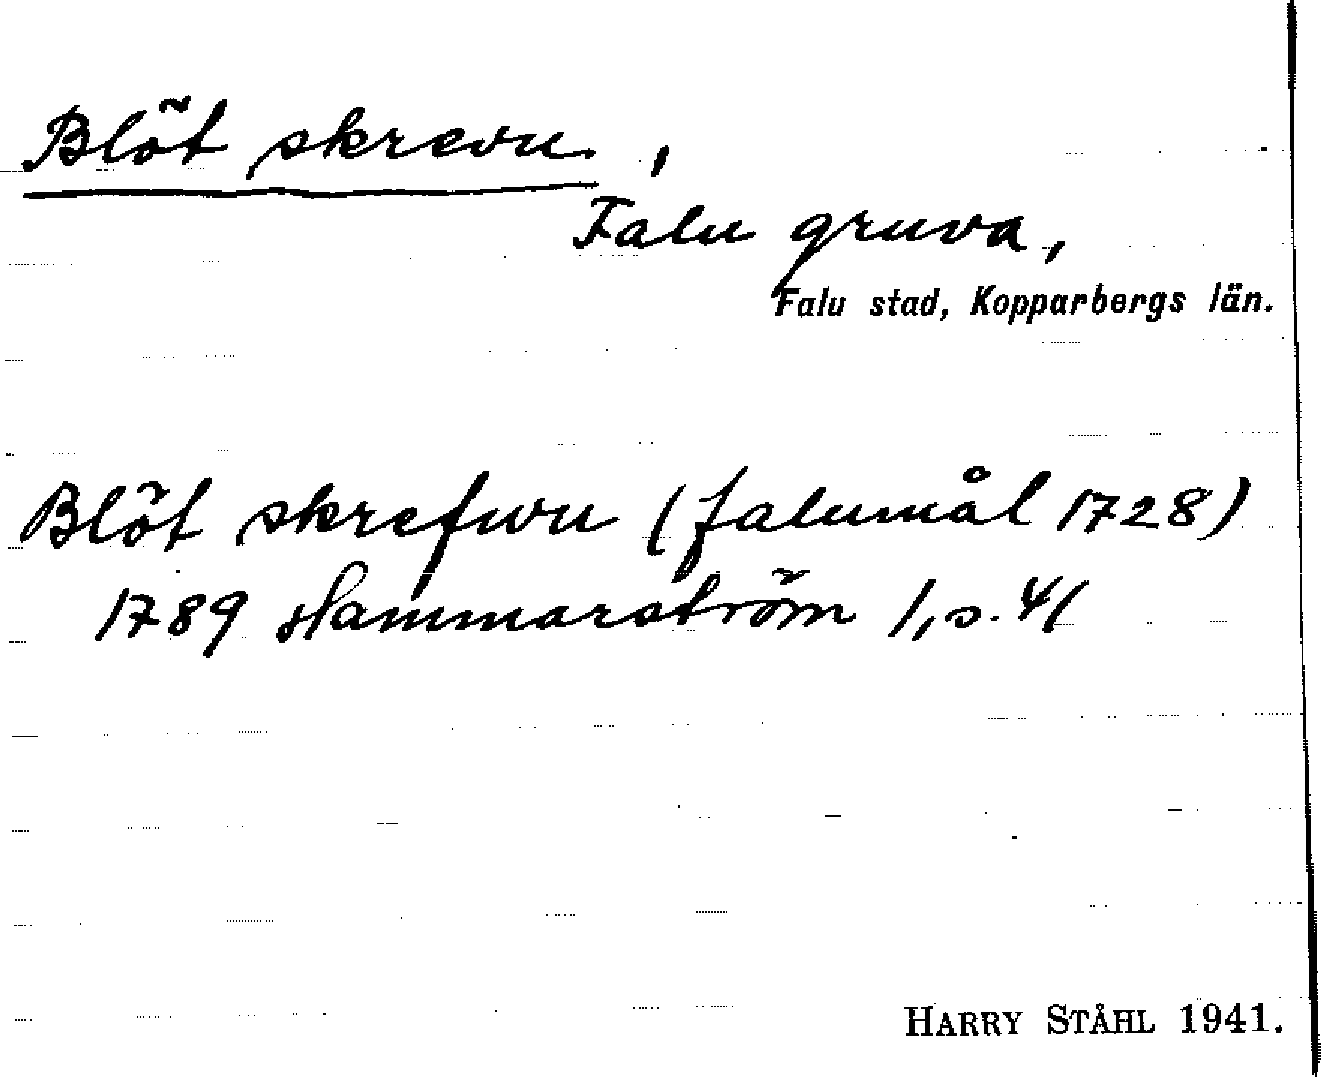 Blöt skrevu,
Falu gruva,
Falu stad, Kopparbergs län.
Blöt skrefwu (falumål 1728)
1789 Hammarström 1, s. 41
HARRY STÅHL 1941.